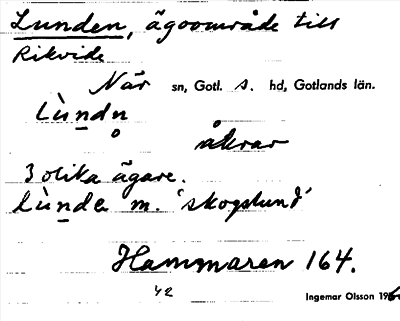 Lunden, ägoområde till
Rikvide
När sn, Gotl. S. hd, Gotlands län.
lùndn̥
åkrar
3 olika ägare.
lùnda m. 'skogslund'
Hammaren 164.
42
Ingemar Olsson 196